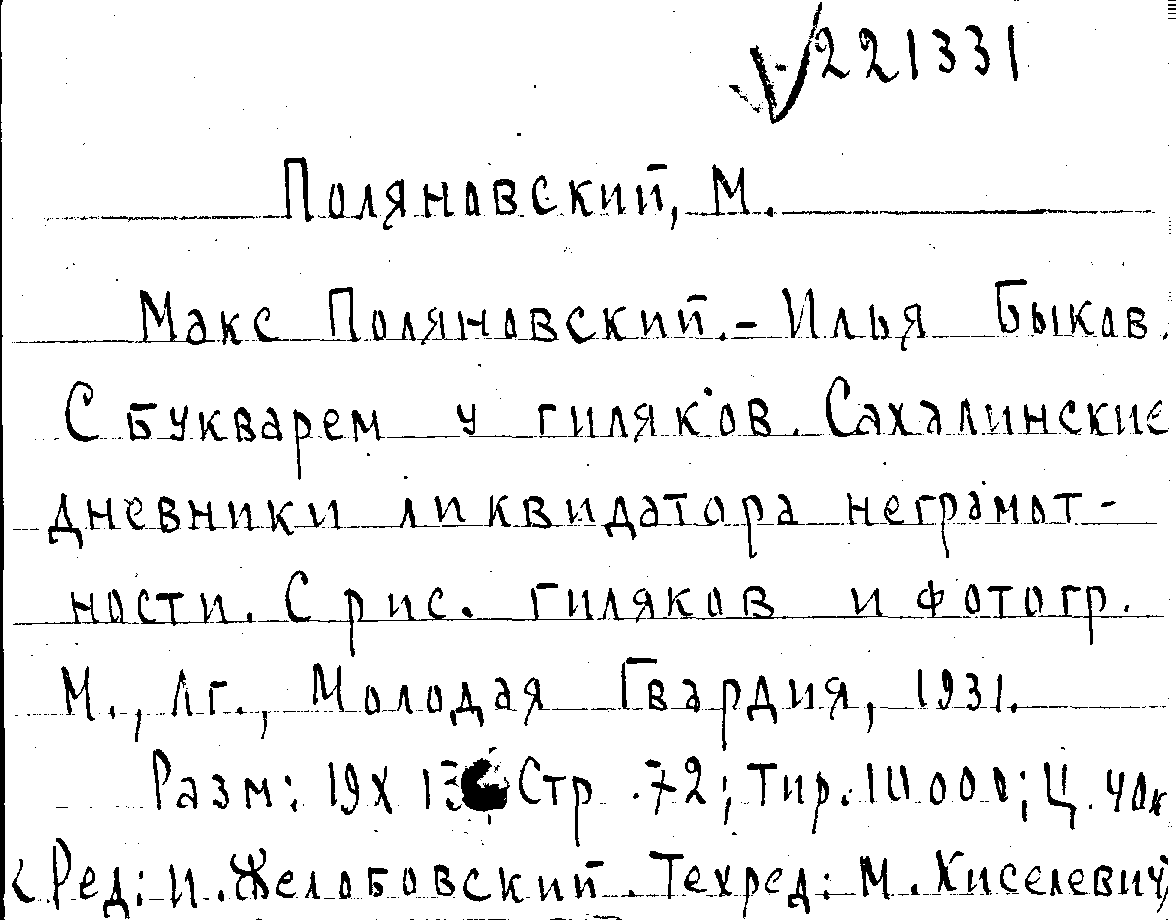 221331
Поляновский, М.
Макс Поляновский.- Илья Быков.
С букварем у гиляков. Сахалинские
дневники ликвидатора неграмот-
ности. С рис. гиляков и фотогр.
М., Лг., Молодая Гвардия, 1931.
Разм: 19х13 Стр. 72; Тир. 10000; Ц. 40к
Ред: И. Желобовский. Техред: М.